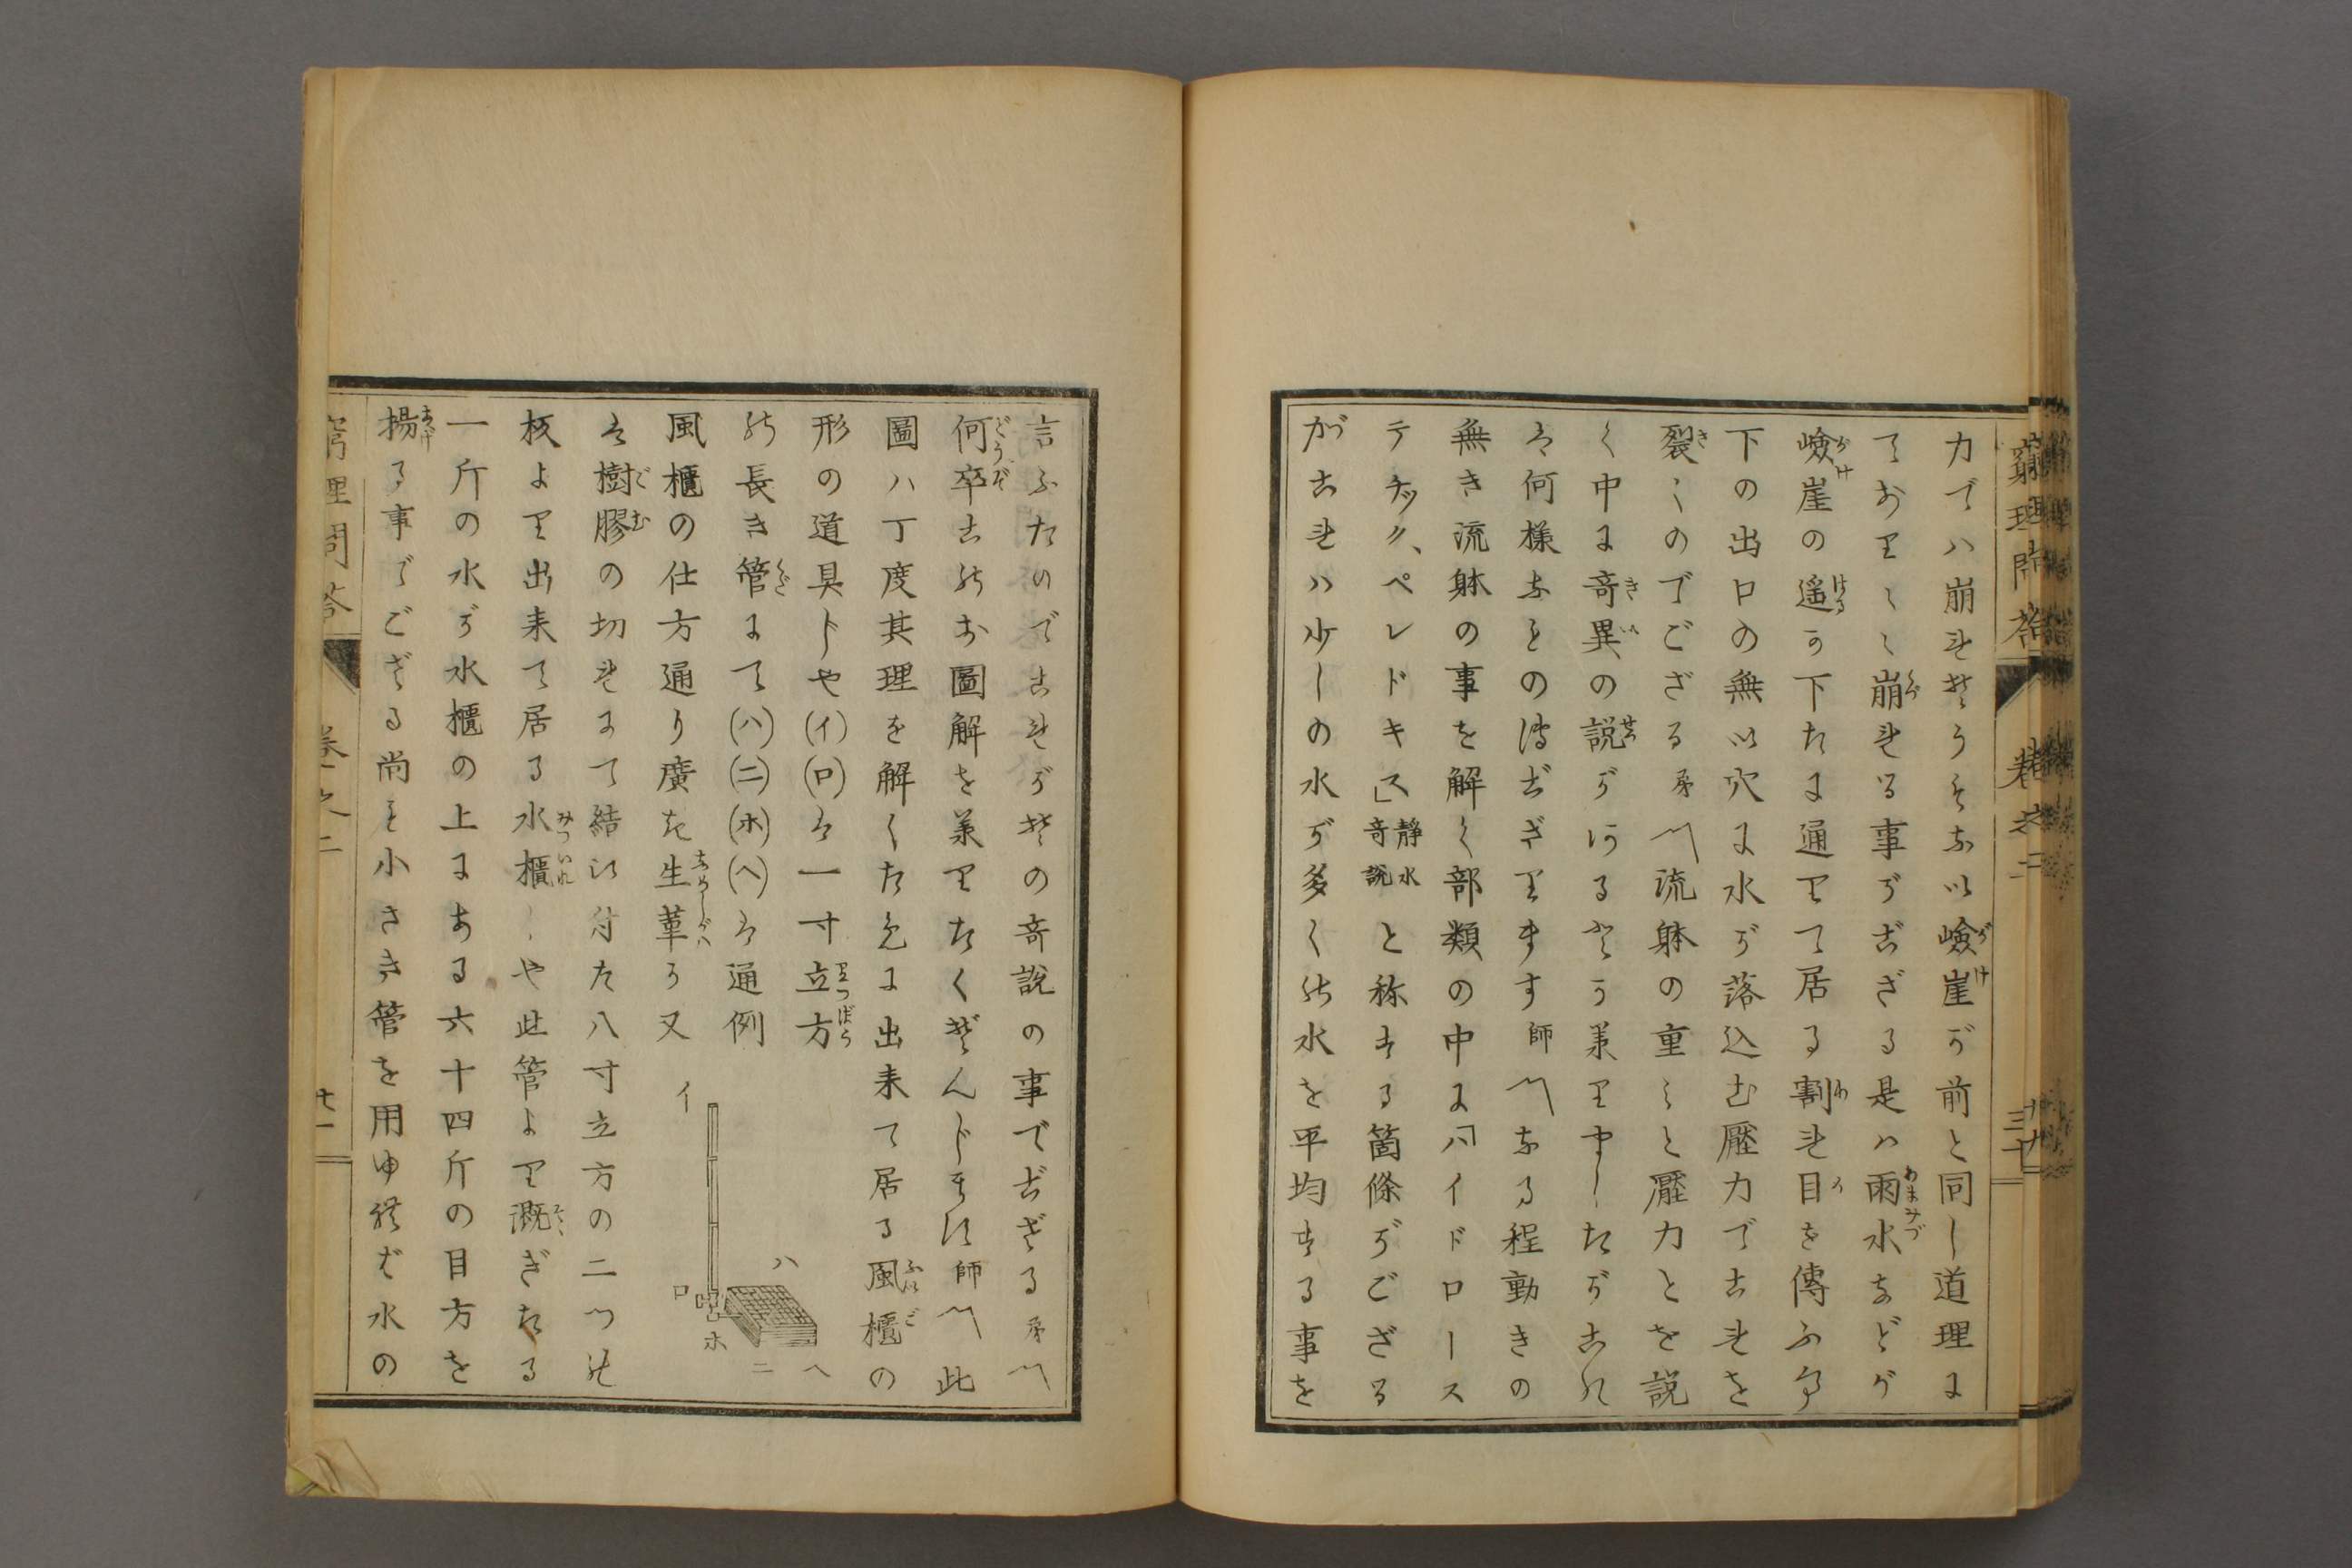 窮理問答 巻之二 三十
力でハ崩れそうもない嶮崖が前と同し道理に
ておりくく崩れる事がござる是ハ雨水などが
嶮崖の遥か下たに通りて居る割れ目を傳ふ乎
下の出口の無い穴に水が落込む壓力でこれを
裂くのでござる 弟〽流躰の重さと壓力とを説
く中に竒異の説がある
は何様なもの
無き流躰の事を解く部類の中に「ハイドロース
テチック、ペレドキス」静水竒説と称する箇條がござる
がこれハ少しの水が多くの水を平均する事を
言ふたのでこれがその竒説の事でござる 弟〽
何卒このお圖解を兼りたくぞんじます 師〽此
圖ハ丁度其理を解くために出来て居る風櫃の
形の道具じや(イ)(ロ)は一寸立方
の長き管にて(ハ)(ニ)(ホ)(ヘ)は通例
風櫃の仕方通り廣き生革か又
は樹膠の切れにて結い付た八寸立方の二つの
板より出来て居る水櫃じや此管より漑ぎたる
一斤の水が水櫃の上にある六十四斤の目方を
揚る事でござる尚も小さき管を用ゆれば水の
イ
ロ
ハ
ホ
ニ
ヘ
窮理問答 巻之二